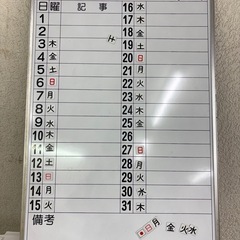 日 曜 記 事
1
2
3 木
4 金
5 土
6 日
7 月
8 火
9 水
10 木
11 金
12 土
13 日
14 月
15 火
備考
16 水
17 木
18 金
19 土
20 日
21 月
22 火
23 水
24 木
25 金
26 土
27 日
28 月
29 火
30 水
31 木
日 月 金 火 水